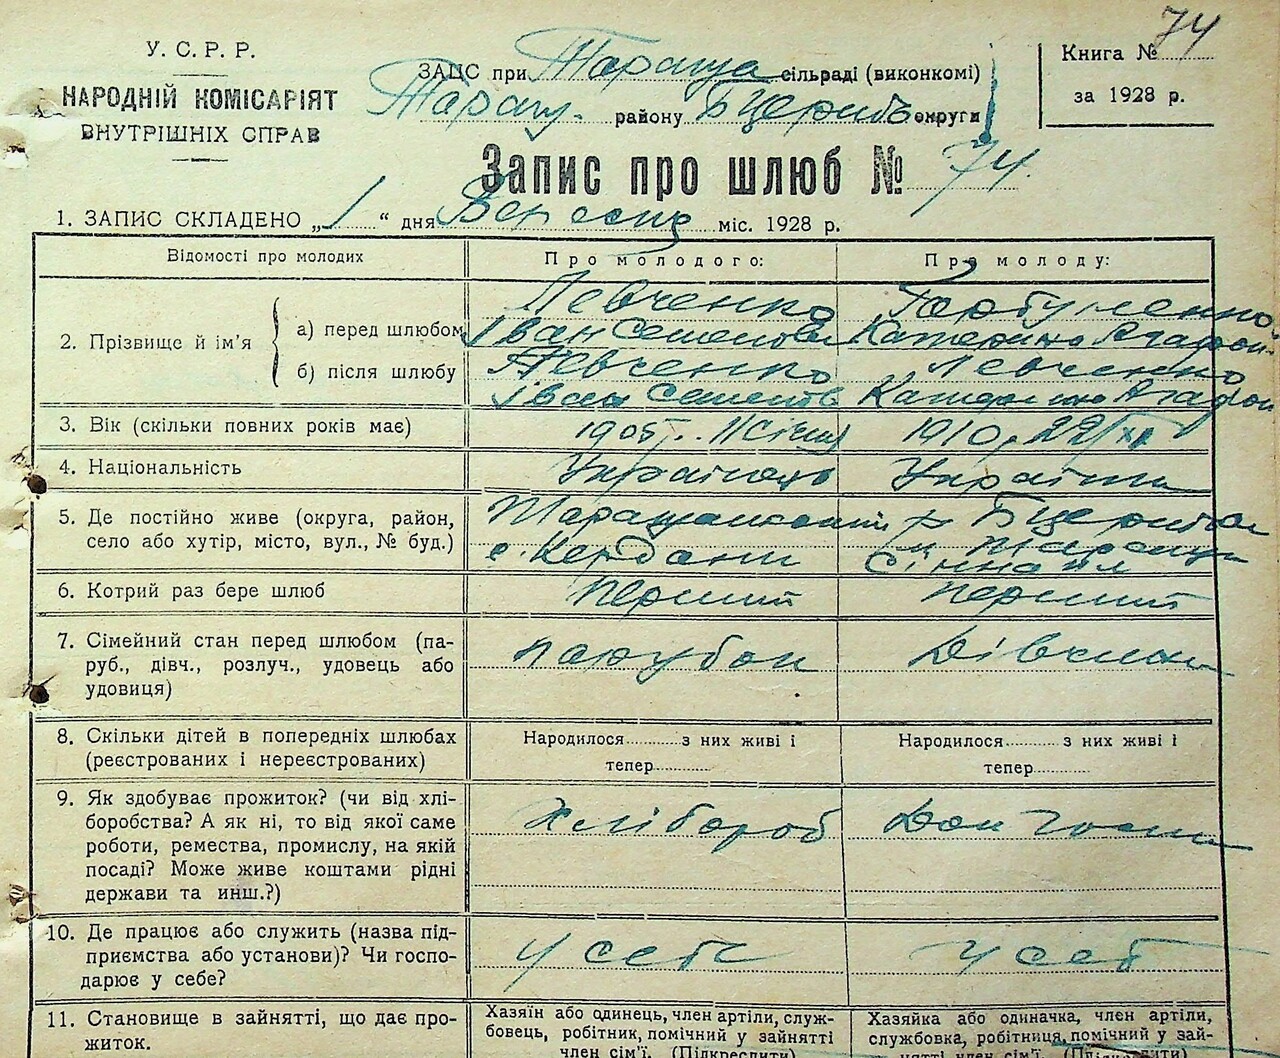 74
У. С. Р. Р.
НАРОДНІЙ КОМІСАРІЯТ
ВНУТРІШНІХ СПРАВ
ЗАЦС при Тараща сільраді (виконкомі)
Таращ. району БЦерків округи
Книга №
за 1928 р.
Запис про шлюб № 74.
1. ЗАПИС СКЛАДЕНО „1“ дня Вересня міс. 1928 р.
Відомості про молодих
Про молодого:
Про молоду:
2. Прізвище й ім'я
а) перед шлюбом
Левченко
Іван Семенов
Горбуленко
Катерина Агафон
б) після шлюбу
Левченко
Іван Семенов
Левченко
Катерина Агафон
3. Вік (скільки повних років має)
1905 р. 11 Січня
1910 р. 22/XI
4. Національність
Українець
Українка
5. Де постійно живе (округа, район,
село або хутір, місто, вул., № буд.)
Таращанський р
с. Кердани
БЦерківськ
м Тараща
6. Котрий раз бере шлюб
Перший
Перший
7. Сімейний стан перед шлюбом (па-
руб., дівч., розлуч., удовець або
удовиця)
парубок
Дівчина
8. Скільки дітей в попередніх шлюбах
(реєстрованих і нереєстрованих)
Народилося з них живі і
тепер
Народилося з них живі і
тепер
9. Як здобуває прожиток? (чи від хлі-
боробства? А як ні, то від якої саме
роботи, ремества, промислу, на якій
посаді? Може живе коштами рідні
держави та инш.?)
Хлібороб
Дом госп
10. Де працює або служить (назва під-
приємства або установи)? Чи госпо-
дарює у себе?
у себе
у себе
11. Становище в зайнятті, що дає про-
житок.
Хазяїн або одинець, член артіли, служ-
бовець, робітник, помічний у зайнятті
член сім'ї. (Підкреслити)
Хазяйка або одиначка, член артіли,
службовка, робітниця, помічний у зай-
нятті член сім'ї.